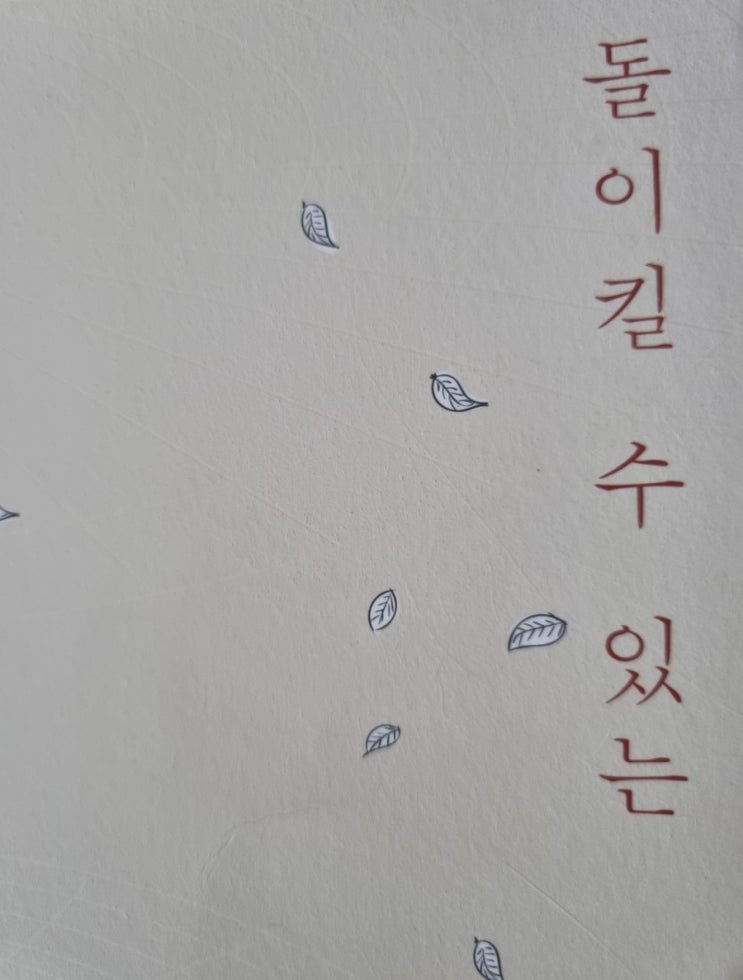 돌이킬 수 있는